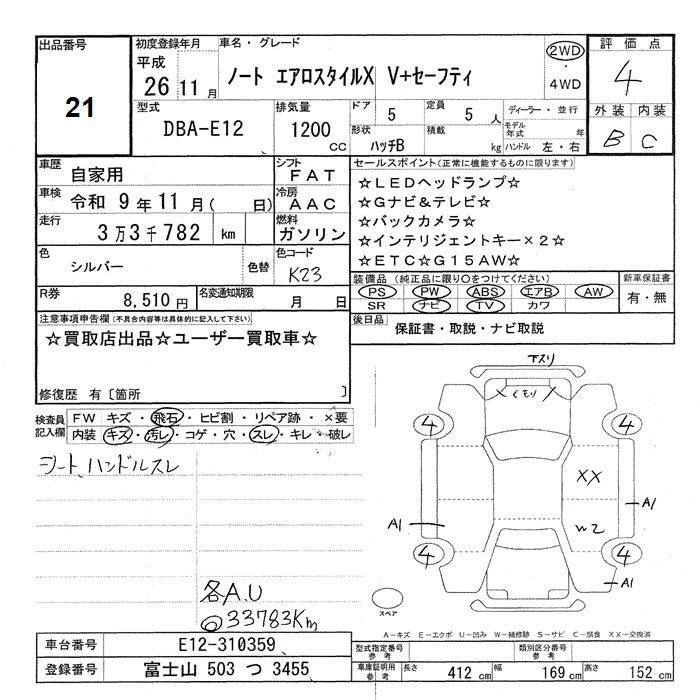 出品番号
21
初度登録年月
平成
26 11 月
車名・グレード
ノート エアロスタイルX V+セーフティ
2WD
・
4WD
評価点
4
外装 内装
B C
型式
DBA-E12
排気量
1200
CC
ドア 5
定員 5 人
形状 ハッチB
積載 kg
ディーラー・並行
モデル年式 年
ハンドル 左・右
車歴 自家用
シフト FAT
車検 令和 9年 11月( 日)
冷房 AAC
走行 3万3千782 km
燃料 ガソリン
色 シルバー 色替
色コード K23
R券 8,510円
名変通知期限 月 日
セールスポイント(正常に機能するものに限ります)
☆LEDヘッドランプ☆
☆Gナビ&テレビ☆
☆バックカメラ☆
☆インテリジェントキー×2☆
☆ETC☆G15AW☆
装備品 (純正品に限り○をつけてください)
PS PW ABS エアB AW
SR ナビ TV カワ
新車保証書
有・無
後日品 保証書・取説・ナビ取説
注意事項申告欄(不具合内容等は具体的に記入して下さい)
☆買取店出品☆ユーザー買取車☆
修復歴 有〔箇所 〕
検査員記入欄
FW キズ・飛石・ヒビ割・リペア跡・×要
内装 キズ・汚レ・コゲ・穴・スレ・キレ・破レ
シート、ハンドルスレ
各A.U
33783Km
下スリ
くもり
4 4
XX
A1
A1
W2
4 4
A1
スペア
A-キズ E-エクボ U-凹み W-補修跡 S-サビ C-腐食 XX-交換済
車台番号 E12-310359
登録番号 富士山 503 つ 3455
型式指定番号 参考
類別区分番号 参考
車庫証明用 参考
長さ 412 cm 幅 169 cm 高さ 152 cm